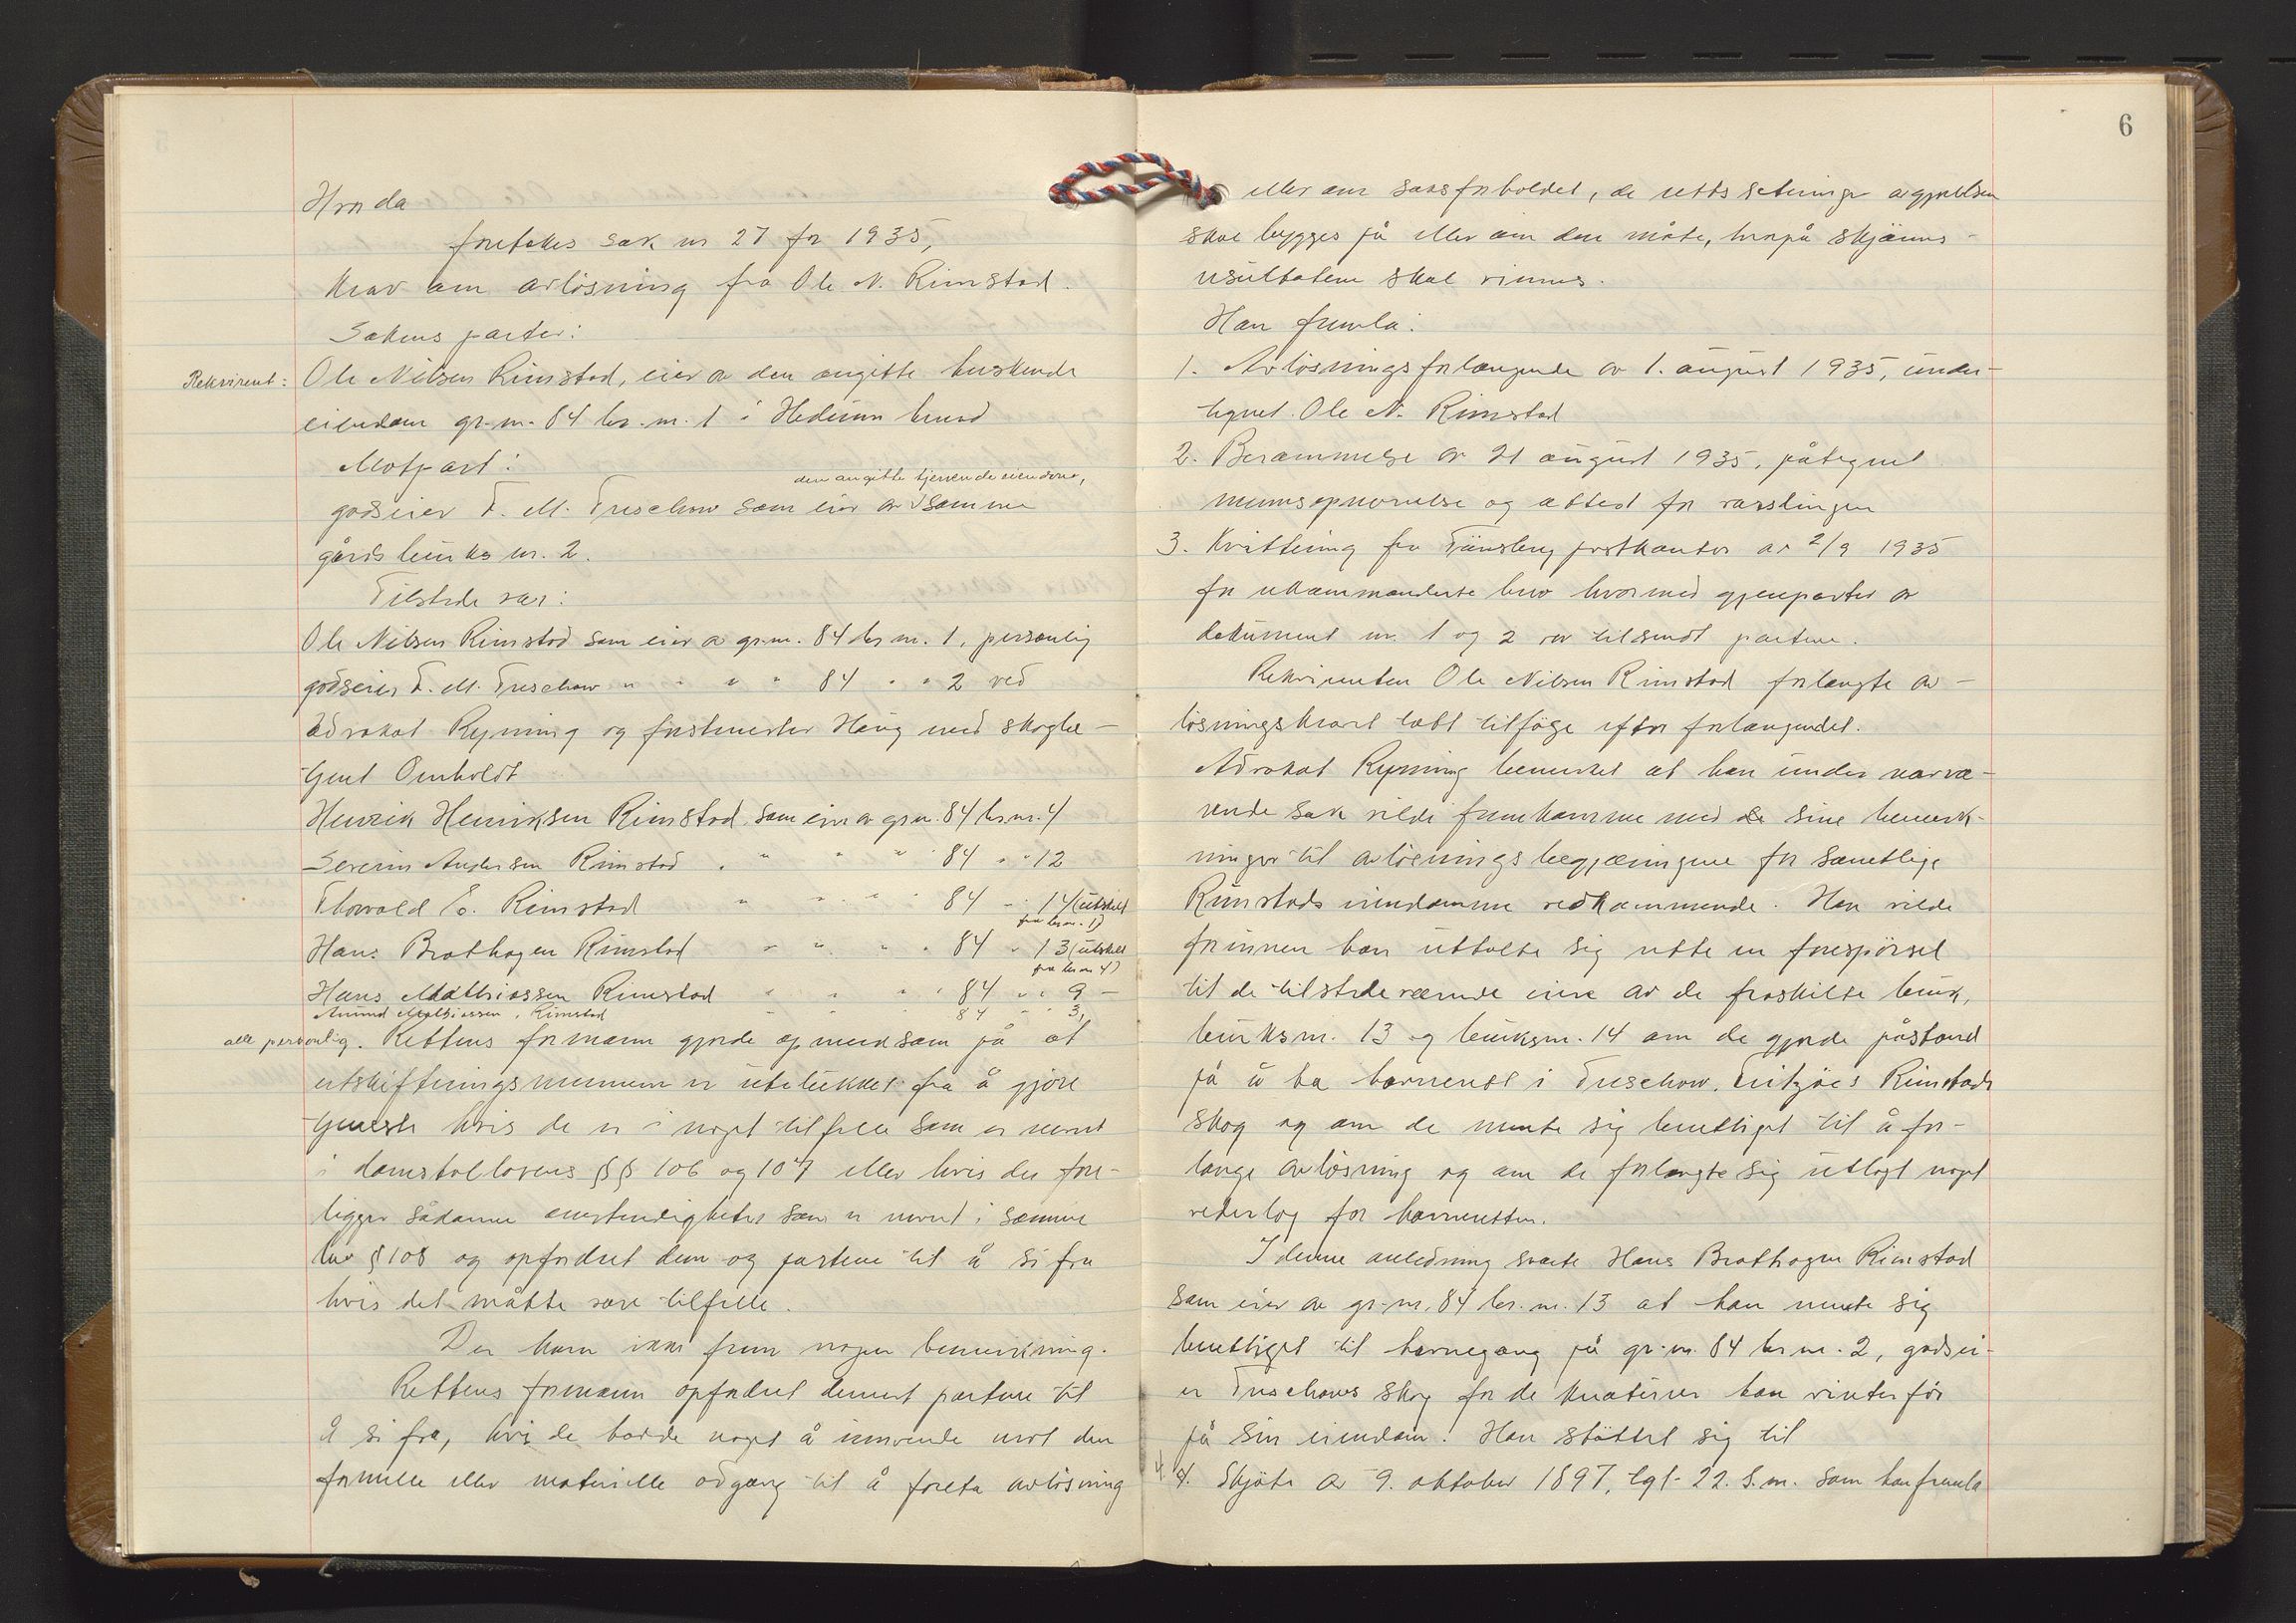 Hvorda
foretokes sak nr 27 for 1935,
krav om avlösning fra Ole N. Rimstad.
Sakens parter:
Rekvirent: Ole Nilsen Rimstad, eier av den angitte herskende
eiendom gr.nr. 84 br.nr. 1 i Hedrum herred
Motpart:
den angitte tjenende eiendom,
godseier F. M. Treschow som eier av samme
gårds bruks nr. 2.
Tilstede var:
Ole Nilsen Rimstad som eier av gr.nr. 84 br nr. 1, personlig
godseier F. M. Treschow " " " " 84 " " 2 ved
advokat Ryning og forstmester Haug med skogbe-
tjent Omholdt
Henrik Henriksen Rimstad som eier av gr.nr. 84 br.nr. 4
Severin Andersen Rimstad " " " " 84 " " 12
Thorvald E. Rimstad " " " " 84 " " 14 (utskilt
fra br.nr. 1)
Hans Brathagen Rimstad " " " " 84 " 13 (utskilt
fra br.nr 4)
Hans Mathiassen Rimstad " " " " 84 " " 9 -
Anund Mathiassen, Rimstad " " 84 " " 3,
alle personlig. Rettens formann gjorde opmerksom på at
utskiftningsmennene er utelukket fra å gjöre
tjeneste hvis de er i noget tilfelle som er nevnt
i domstollovens §§ 106 og 107 eller hvis der fore-
ligger sådanne omstendigheter som er nevnt i samme
lov § 108 og opfordret dem og partene til å si fra
hvis det måtte være tilfelle.
Der kom ikke frem nogen bemerkning.
Rettens formann opfordret dernest partene til
å si fra, hvis de hadde noget å innvende mot den
formelle eller materielle adgang til å foreta avlösning
6
eller om saksforholdet, de rettssetninger avgjörelsen
skal bygges på eller om den måte, hvorpå skjönns-
resultatene skal vinnes.
Han fremla:
1. Avlösningsforlangende av 1. august 1935, under-
tegnet Ole N. Rimstad
2. Berammelse av 21 august 1935, påtegnet
mennsopnevnelse og attest for varslingen
3. Kvittering fra Tönsberg postkontor av 2/9 1935
for rekommanderte brev hvormed gjenparter av
dokument nr. 1 og 2 var tilsendt partene.
Rekvirenten Ole Nilsen Rimstad forlangte av-
lösningskravet tatt tilföige efter forlangendet.
Advokat Ryning bemerket at han under nærvæ-
rende sak vilde fremkomme med de sine bemerk-
ninger til avlösningsbegjæringene for samtlige
Rimstads eiendomme vedkommende. Han vilde
forinnen han uttalte sig rette en forespörsel
til de tilstedeværende eiere av de fraskilte bruk,
bruksnr. 13 og bruksnr. 14 om de gjorde påstand
på å ha havnerett i Treschow-Fritzöes Rimstads
skog og om de mente sig berettiget til å for-
lange avlösning og om de forlangte sig utlagt noget
vederlag for havneretten.
I denne anledning svarte Hans Brathagen Rimstad
som eier av gr.nr. 84 br.nr. 13 at han mente sig
berettiget til havnegang på gr.nr. 84 br nr. 2, godsei-
er Treschows skog for de kreaturer han vinterför
på sin eiendom. Han stöttet sig til
4. 4. Skjöte av 9. oktober 1897, tgl. 22. s.m. som han fremla